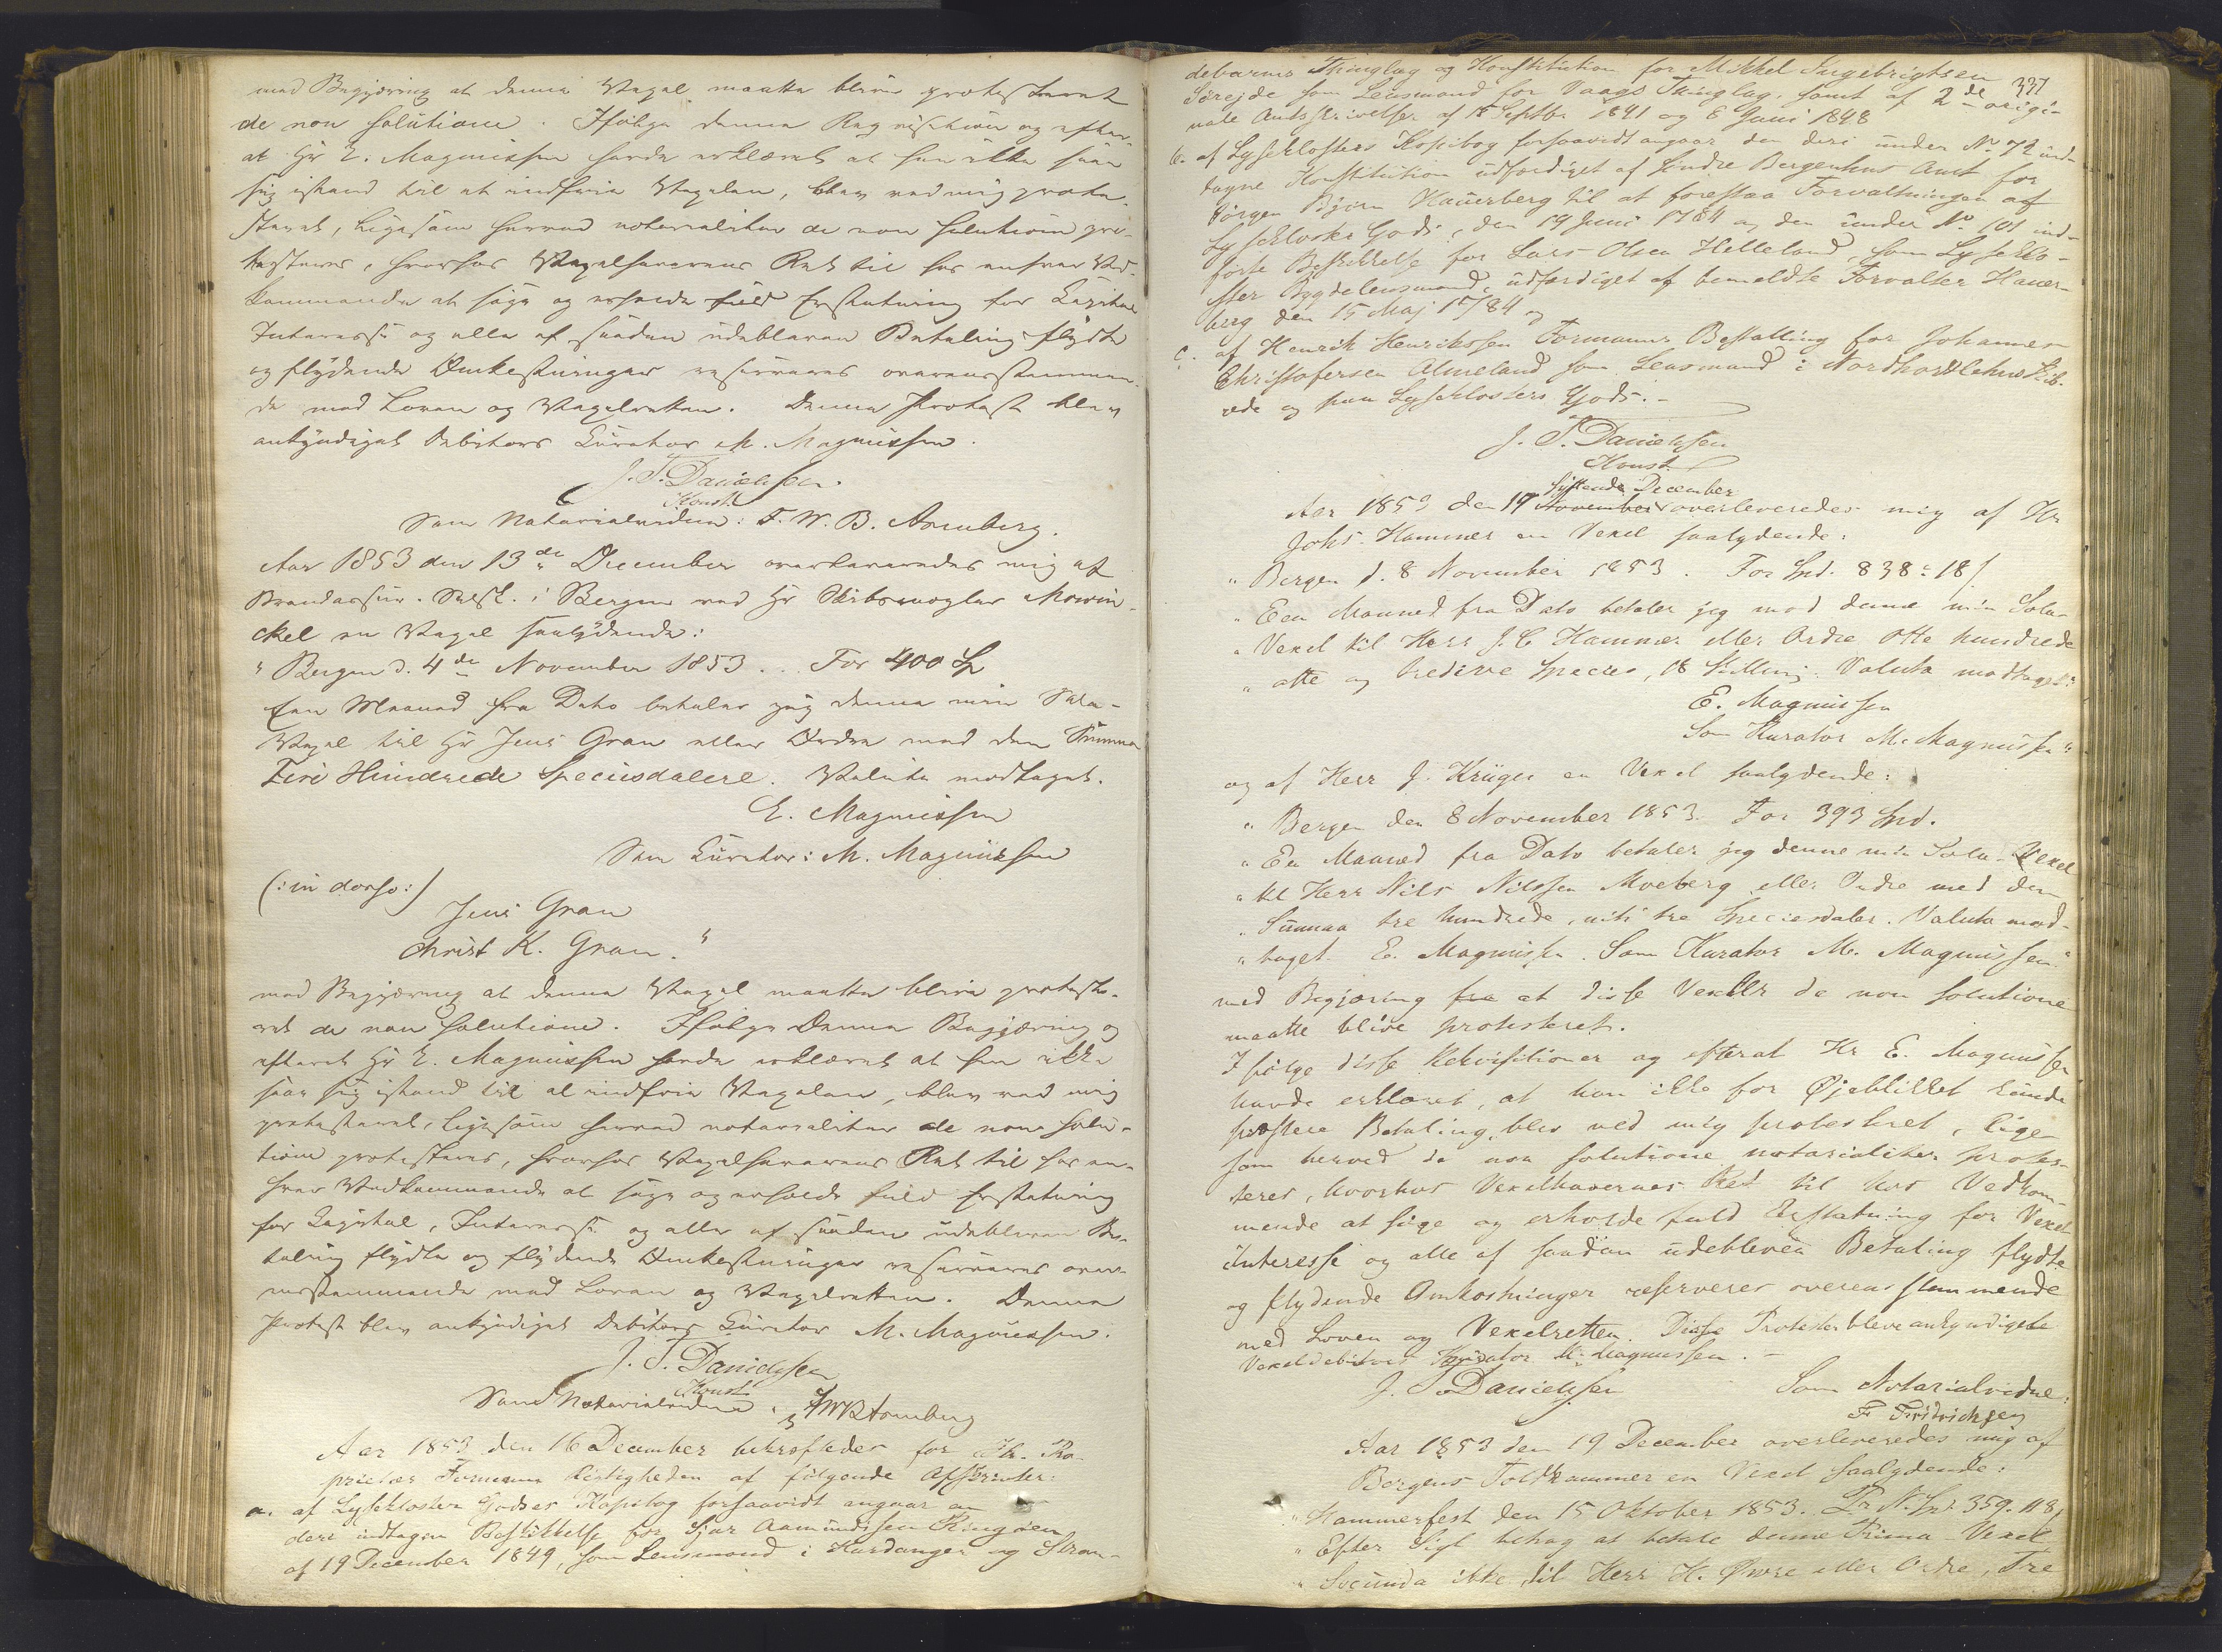 med Begjæring at denne Vexel maatte blive protesteret
de non solutione. Ifølge denne Requisition og efter-
at Hr E. Magnussen havde erklæret at han ikke saae
sig istand til at indfrie Vexelen, blev ved mig prote-
steret, ligesom herved notarialiter de non solutione pro-
testeres, hvorhos Vexelhaverens Ret til hos enhver Ved-
kommende at søge og erholde fuld Erstatning for Capital
Interesse og alle af saadan udebleven Betaling flydte
og flydende Omkostninger reserveres overensstemmen-
de med Loven og Vexelretten. Denne Protest blev
ankyndiget Debitors Curator M. Magnussen.
J. T. Danielssen.
Konst.
Som Notarialvidne: F. W. B. Aremberg.
Aar 1853 den 13de December overleveredes mig af
i Bergen ved Hr Mowin-
ckel en Vexel saalydende:
" Bergen d. 4de November 1853. . For 400 Sp
Een Maaned fra Dato betaler jeg denne min Sola-
Vexel til Hr Jens Gran eller Ordre med den Summa
Fire Hundrede Speciesdalere. Valuta modtaget.
E. Magnussen
Som Curator: M. Magnussen
(: in dorso :)
Jens Gran
Christ K. Gran. "
med Begjæring at denne Vexel maatte blive proteste-
ret de non solutione. Ifølge denne Begjæring og
efterat Hr E. Magnussen havde erklæret at han ikke
saae sig istand til at indfrie Vexelen, blev ved mig
protesteret, ligesom herved notarialiter de non solu-
tione protesteres, hvorhos Vexelhaverens Ret til hos en-
hver Vedkommende at søge og erholde fuld Erstatning
for Capital, Interesse og alle af saadan udebleven Be-
taling flydte og flydende Omkostninger reserveres over-
ensstemmende med Loven og Vexelretten. Denne
Protest blev ankyndiget Debitors Curator M. Magnussen.
J. T. Danielssen
Konst.
Som Notarialvidne: FWBAremberg
Aar 1853 den 16 December bekræftedes for Hr. Pro-
prietær Formann Rigtigheden af følgende Afskrifter:
a. af Lyseklosters Godses Kopibog forsaavidt angaar en
deri indtagen Beskikkelse for Sjur Aamundssen Ringøen
af 19 December 1849, som Lensmand i Hardanger og Stran-
337
debarms Thinglag og Konstitution for Mikkel Ingebrigtsen
Sørejde som Lensmand for Vaags Thinglag. samt af 2de origi-
nale Amtsskrivelser af 18 Septbr 1841 og 6 Juni 1848
b. af Lyseklosters Kopibog forsaavidt angaar den deri under No 72 ind-
tagne Konstitution udfærdiget af Søndre Bergenhus Amt for
Jørgen Bjørn Hauerberg til at forestaa Forvaltningen af
Lyseklosters Gods, den 19 Juni 1784 og den under No 101 ind-
førte Beskikkelse for Lars Olsen Helleland, som Lyseklo-
sters Bygdelensmand, udfærdiget af bemeldte Forvalter Hauer-
berg den 15 Maj 1784 og
c. af Henrik Henrikssen Formanns Bestalling for Johannes
Christofersen Almeland som Lensmand i Nordhordlehns Skib-
rede og paa Lyseklosters Gods. -
J. T. Danielssen
Konst.
syttende December
Aar 1853 den 19 November overleveredes mig af Hr
Johs. Hammer en Vexel saalydende:
" Bergen d. 8 November 1853. For Spd. 838 : 18 s
" Een Maaned fra Dato betaler jeg mod denne min Sola-
" Vexel til Herr J. C Hammer eller Ordre Otte hundrede
" otte og tredive Specier, 18 Skilling. Valuta modtaget.
E. Magnussen
Som Kurator M. Magnussen "
og af Herr J. Krüger en Vexel saalydende:
" Bergen den 8 November 1853. For 393 Spd.
" En Maaned fra Dato betaler jeg denne min Sola-Vexel
" til Herr Nils Nilssen Moeberg eller Ordre med den
" Summa tre hundrede, niti tre Speciesdaler. Valuta mod-
" taget. E. Magnussen. Som Kurator M. Magnussen. "
med Begjæring fra at disse Vexler de non solutione
maatte blive protesteret.
Ifølge disse Rekvisitioner og efterat Hr E. Magnussen
havde erklæret, at han ikke for Øjeblikket kunde
præstere Betaling, blev ved mig protesteret, lige-
som herved de non solutione notarialiter protes-
teres, hvorhos Vexelhavernes Ret til hos Vedkom-
mende at søge og erholde fuld Erstatning for Vexel
Interesse og alle af saadan udebleven Betaling flydte
og flydende Omkostninger reserveres overensstemmende
med Loven og Vexelretten. Disse Protester bleve ankyndigede
Vexeldebitors Kurator M. Magnussen. -
J. T. Danielssen Som Notarialvidne:
F Fridrichsen
Aar 1853 den 19 December overleveredes mig af
Bergens Toldkammer en Vexel saalydende:
" Hammerfest den 15 Oktober 1853. Pr N. Spd. 359. 118 s
" Efter Sigt behag at betale denne Prima-Vexel
" Secunda ikke, til Herr H. Øwre eller Ordre, Tre